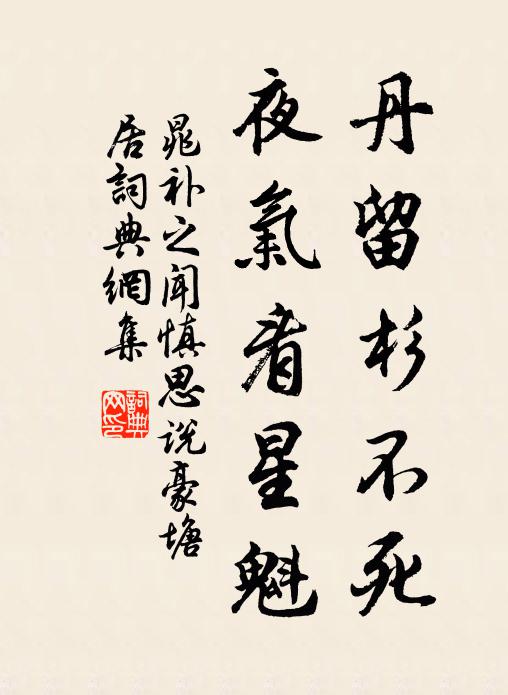 丹留杉不死
夜氣看星魁
晁补之闻慎思说豪塘
居詞典網集
詞典
网印